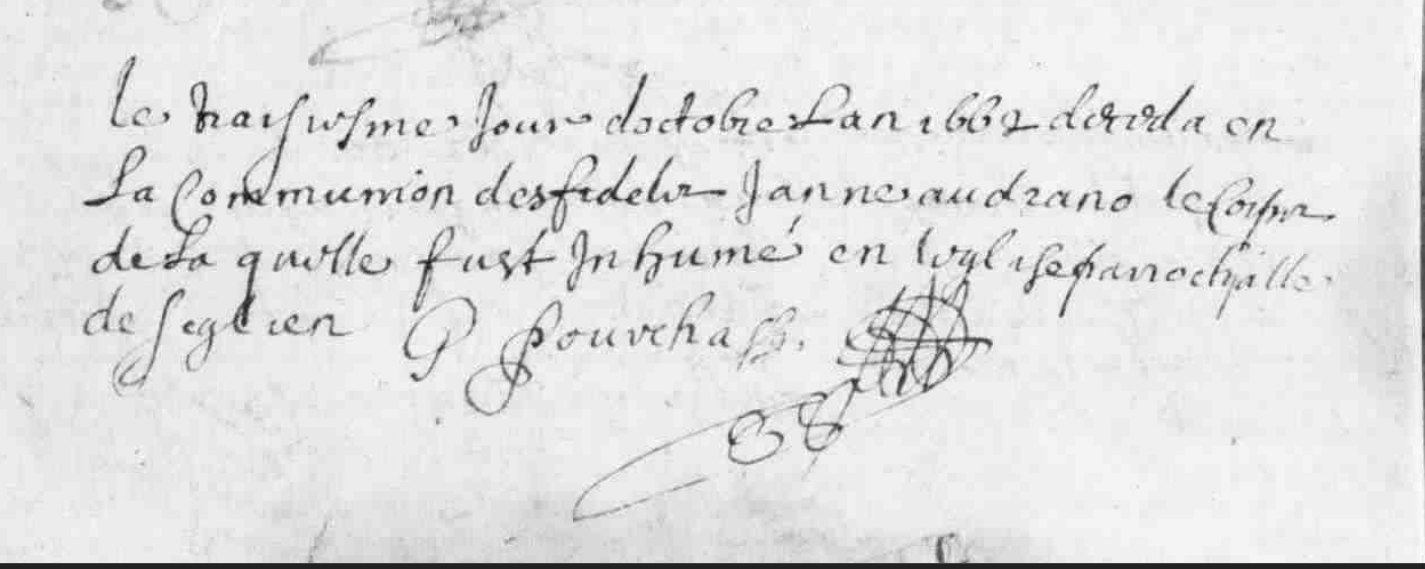 le traisiesme Jour doctobre Lan 1662 deceda en
La Communion des fideles Janne audrano le Corps
de La quelle fust Inhumé en leglise parrochialle
de seglien P Pourchass.